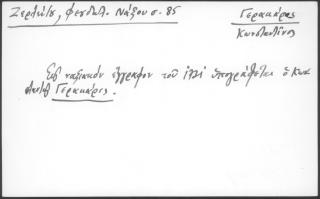 Ζερλέντου, Φεουδαλ. Νάξου σ. 85
Γερακάρης
Κωνσταντῖνος
Εἰς ναξιακὸν ἔγγραφον τοῦ 1721 ὑπογράφεται ὁ Κων
σταντῆς Γερακάρις.